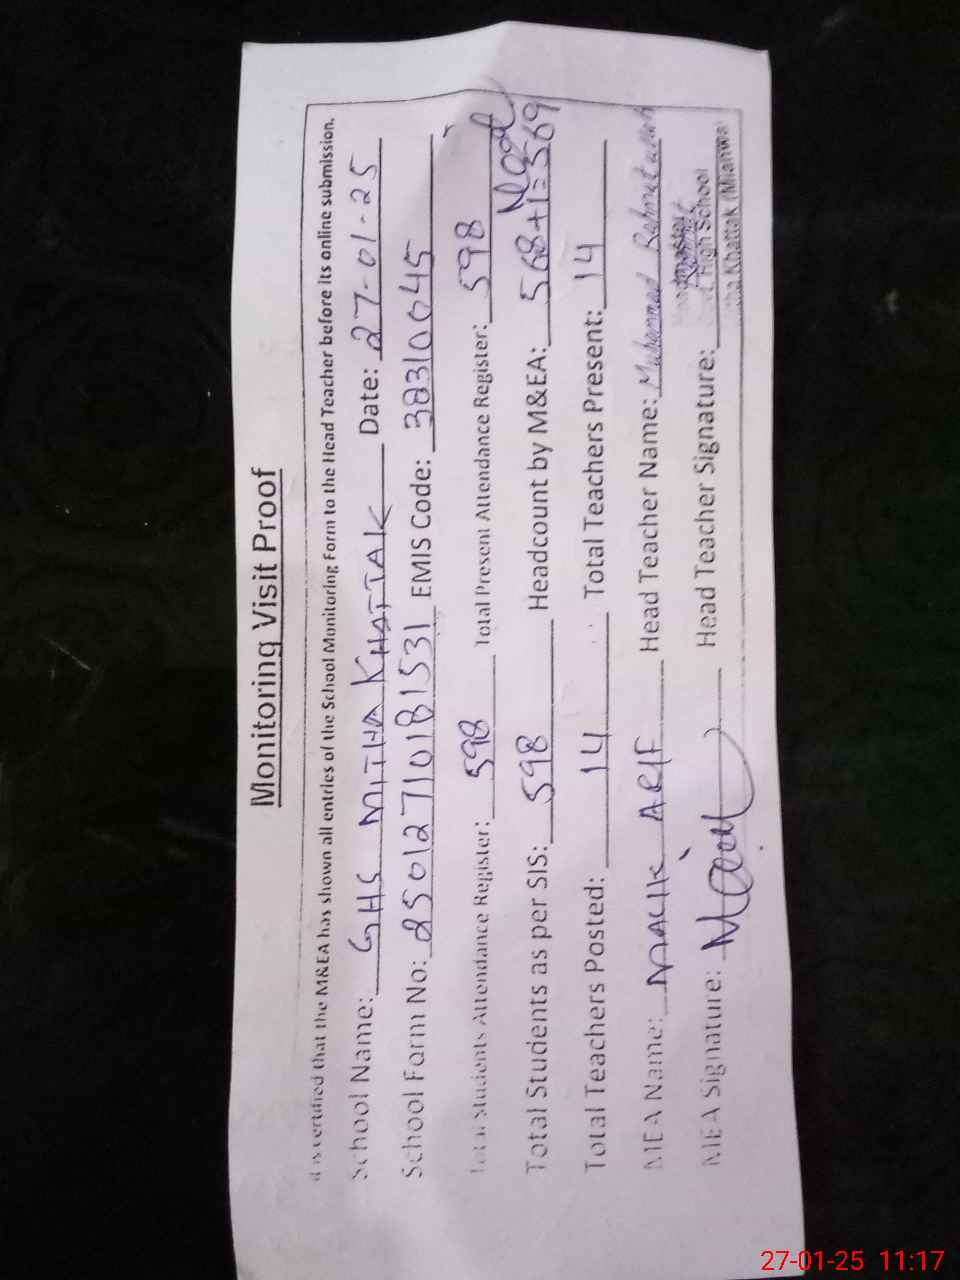 Monitoring Visit Proof
It is certified that the M&EA has shown all entries of the School Monitoring Form to the Head Teacher before its online submission.
School Name: GHS MITHA KHATTAK Date: 27-01-25
School Form No: 25012710181531 EMIS Code: 38310045
Total Students Attendance Register: 598 Total Present Attendance Register: 598
Total Students as per SIS: 598 Headcount by M&EA: 568+1=569
Total Teachers Posted: 14 Total Teachers Present: 14
MEA Name: MALIK ARIF Head Teacher Name: Muhammad Rehmatullah
MEA Signature: Head Teacher Signature:
High School
Khattak (Mianwa
27-01-25 11:17